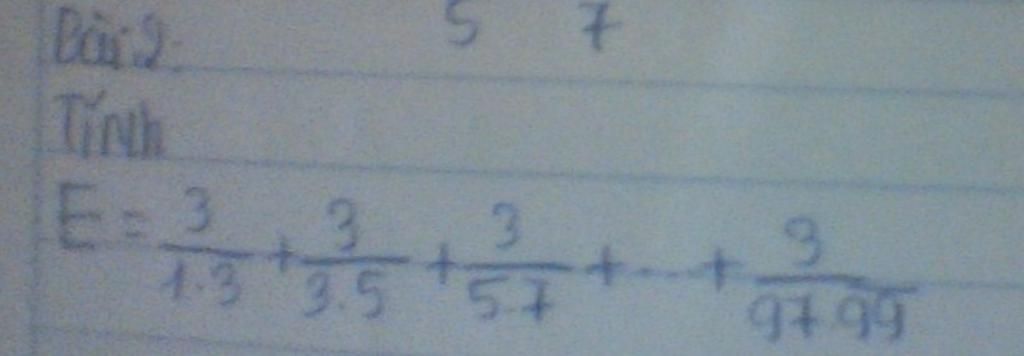 5 7
Bài 2:
Tính
E = 3/1.3 + 3/3.5 + 3/5.7 + ... + 3/97.99